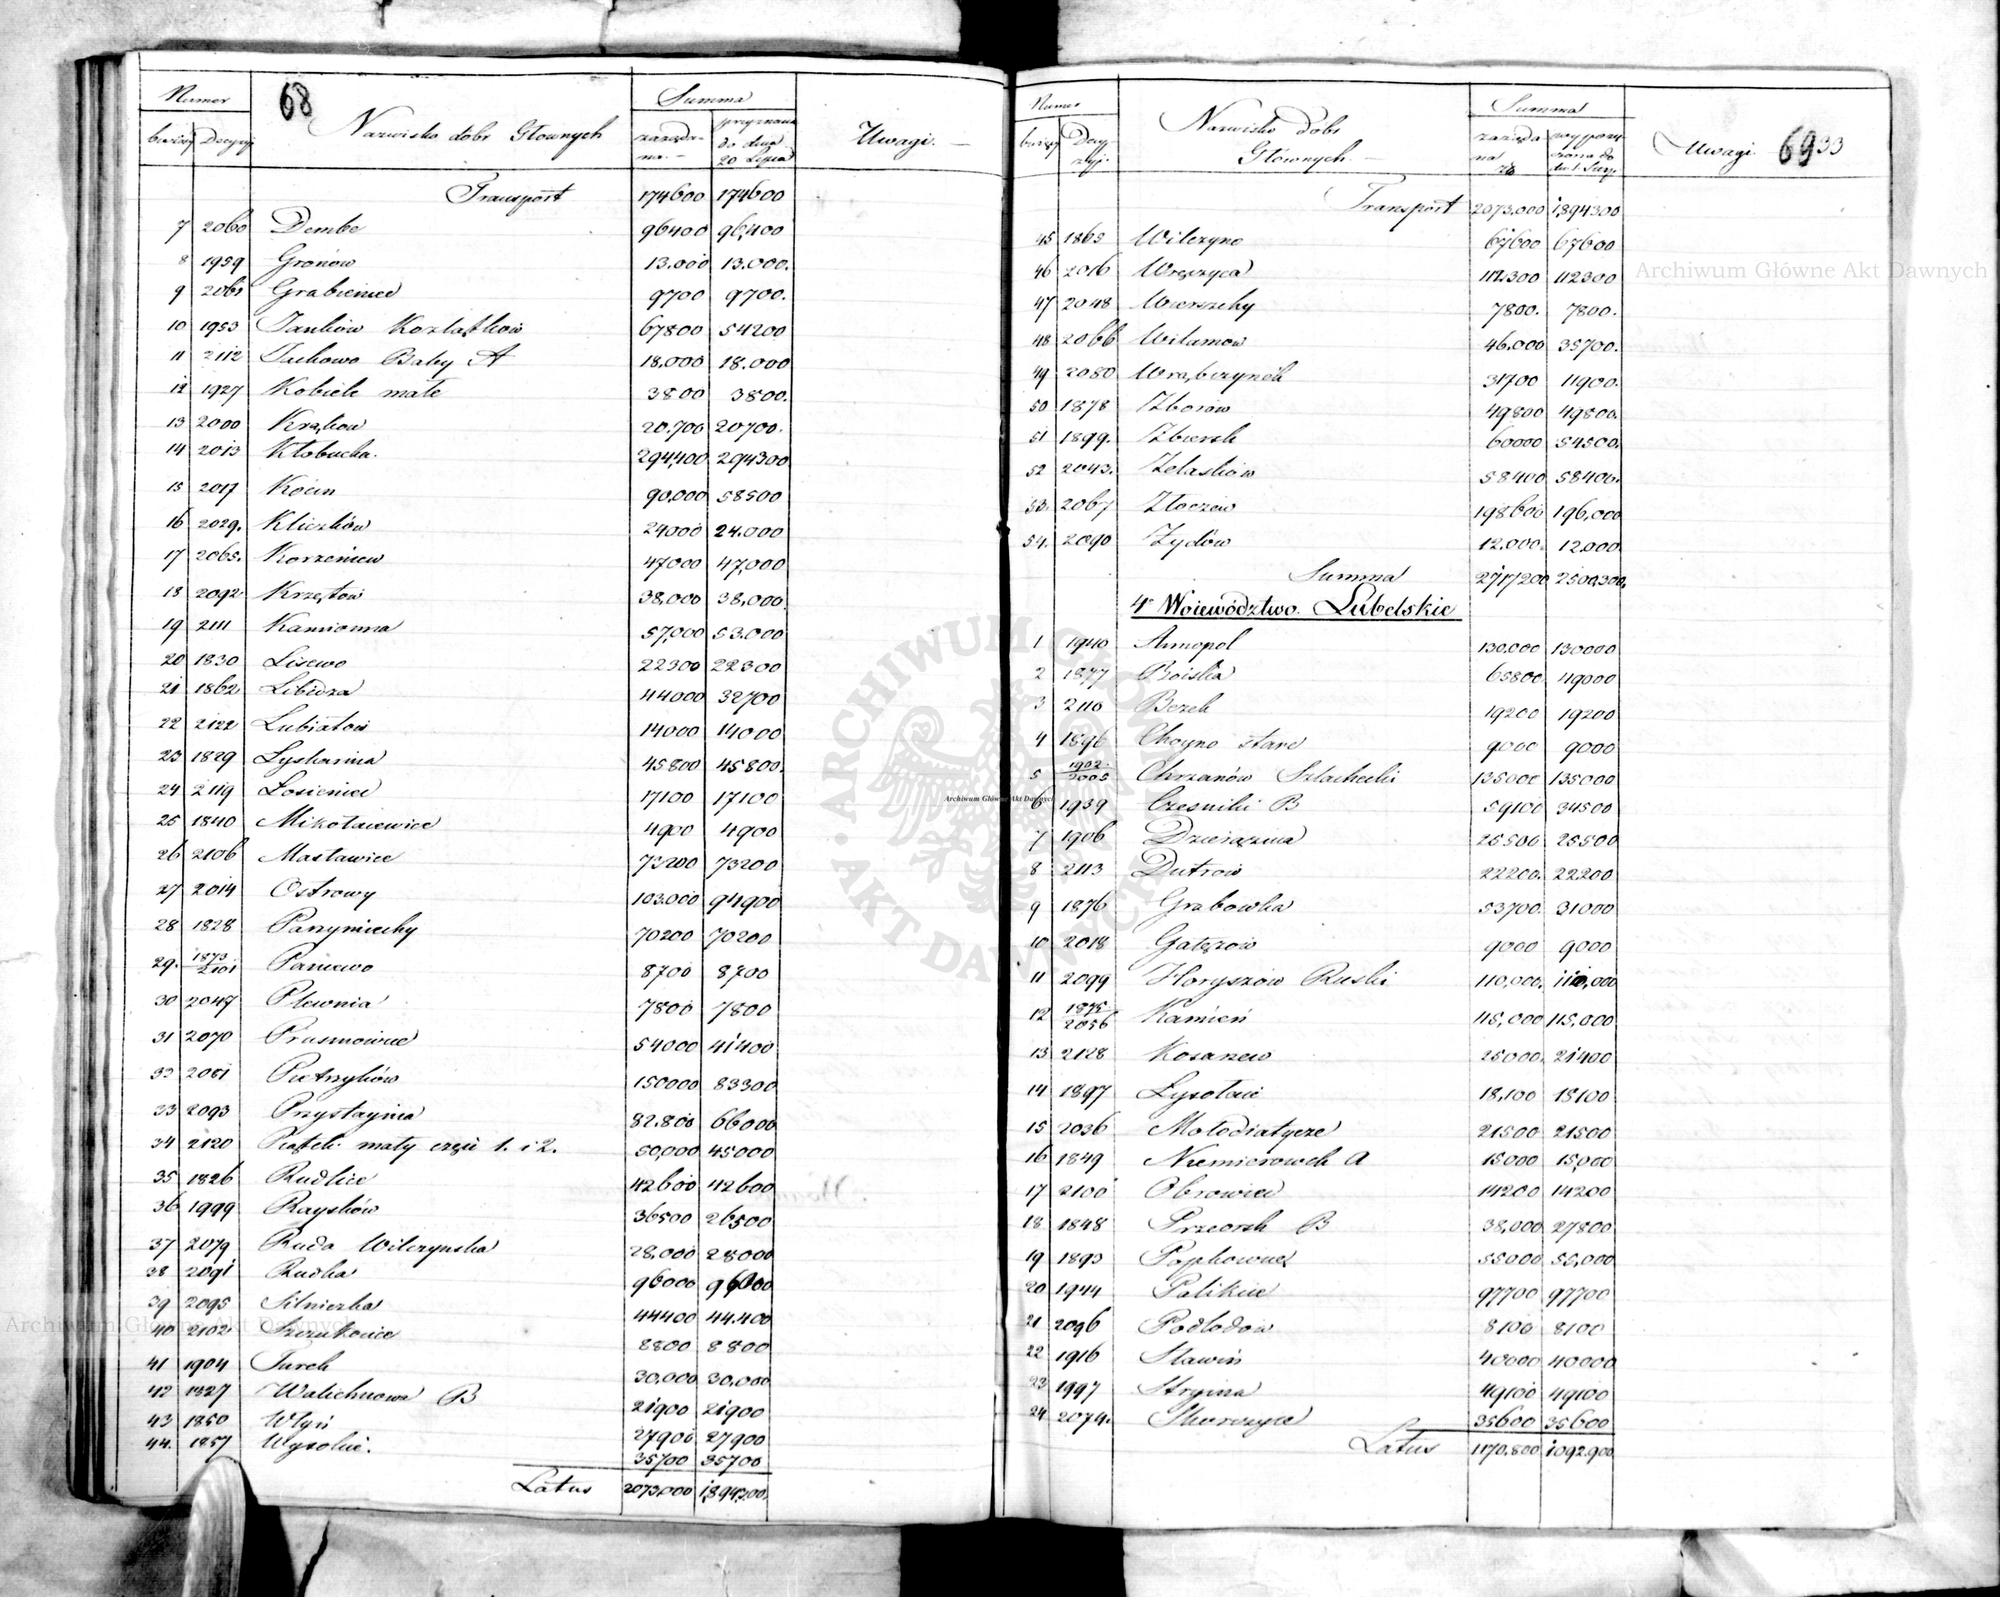 68
Numer Nazwisko dóbr Głównych Summa Uwagi.
bieżący Decyzyi zażąda-na.- przyznana do dnia 20 Lipca
Transport 174600 174600
7 2060 Dembe 96400 96,400
8 1959 Gronów 13.000 13.000.
9 2061 Grabieniec 9700 9700.
10 1953 Janków Kozłątków 67800 54200
11 2112 Juckowo Baby A 18,000 18.000
12 1927 Kobiele małe 3800 3800.
13 2000 Krąków 20.700 20700.
14 2013 Kłobucka. 294,400 294300
15 2017 Kocin 90,000 58500
16 2029. Kliczków 24000 24.000
17 2065. Korzeniew 47000 47,000
18 2092 Krzętów 38,000 38,000.
19 2111 Kamionna 57,000 53.000
20 1830 Lisewo 22300 22300
21 1862 Libidza 44000 32700
22 2122 Lubiatów 14000 14000
23 1829 Łyskarnia 45800 45800.
24 2119 Łosieniec 17100 17100
25 1840 Mikołaiewice 4900 4900
26 2106 Masławice 73200 73200
27 2014 Ostrowy 103.000 94900
28 1828 Parzymiechy 70200 70200
29. 1873/2101 Paniewo 8700 8700
30 2047 Plewnia 7800 7800
31 2070 Prusinowice 54000 41400
32 2081 Pietrzyków 150000 83300
33 2093 Przystaynia 82.800 66000
34 2120 Piątek mały części 1. i 2. 50,000 45000
35 1826 Rudlice 42600 42600
36 1999 Raysków 36500 26500
37 2079 Ruda Wilczynska 28,000 28000
38 2091 Rudka 96000 96000
39 2095 Silniczka 44400 44.400
40 2102 Szczukocice 8800 8800
41 1904 Turek 30,000 30,000
42 1827 Walichnowa B 21900 21900
43 1850 Włyń 27900 27900
44. 1857 Wysokie. 35700 35700
Latus 2073,000 1,894,300.
69 33
Numer Nazwisko dóbr Głównych. Summa Uwagi
bieżący Decyzyi. zażądana wypożyczona do
Transport 2073.000 1,894300
45 1865 Wilczyno 67600 67600
46 2016 Wręczyca 112.300 112300
47 2048 Wierzchy 7800. 7800.
48 2066 Witamow 46.000 35700.
49 2080 Wrąbczynek 31700 11900.
50 1878 Zborów 49800 49800.
51 1899. Zbiersk 60000 54500.
52 2043. Żelasków 58400 58400.
53. 2067 Złoczew 198600 196,000
54. 2090 Żydów 12.000. 12.000
Summa 2,717200 2500,300.
4º Woiewództwo. Lubelskie
1 1940 Annopol 130.000 130000
2 1877 Boiska 65800 49000
3 2110 Bezek 19200 19200
4 1896 Choyno stare 9000 9000
5 1902/2005 Chrzanów Szlachecki 135000 135000
6 1939 Czesniki B 59100 34500
7 1906 Dzierąznia 25500 25500
8 2113 Dutrow 22200. 22200
9 1876 Grabowka 53700. 31000
10 2018 Gałęzow 9000 9000
11 2099 Horyszów Ruski 110,000. 110,000
12 1875/2056 Kamień 115,000 115,000
13 2128 Kosarzew 25000. 21400
14 1897 Łysołaie 18,100 18100
15 2036 Mołodiatycze 21500 21500
16 1849 Niemierowek A 15000 15,000
17 2100 Obrowiec 14200 14200
18 1848 Przeorsk B 38,000 27800
19 1893 Popkowice 55000 55,000
20 1944 Palikiie 97700 97700
21 2096 Podlodow 8100 8100
22 1916 Sławiń 40000 40000
23 1997 Stryina 49100 49100
24 2074. Skorczyce 35600 35600
Latus 1170,800 1092.900
Archiwum Główne Akt Dawnych
Archiwum Główne Akt Dawnych
Archiwum Główne Akt Dawnych
ARCHIWUM GŁÓWNE AKT DAWNYCH